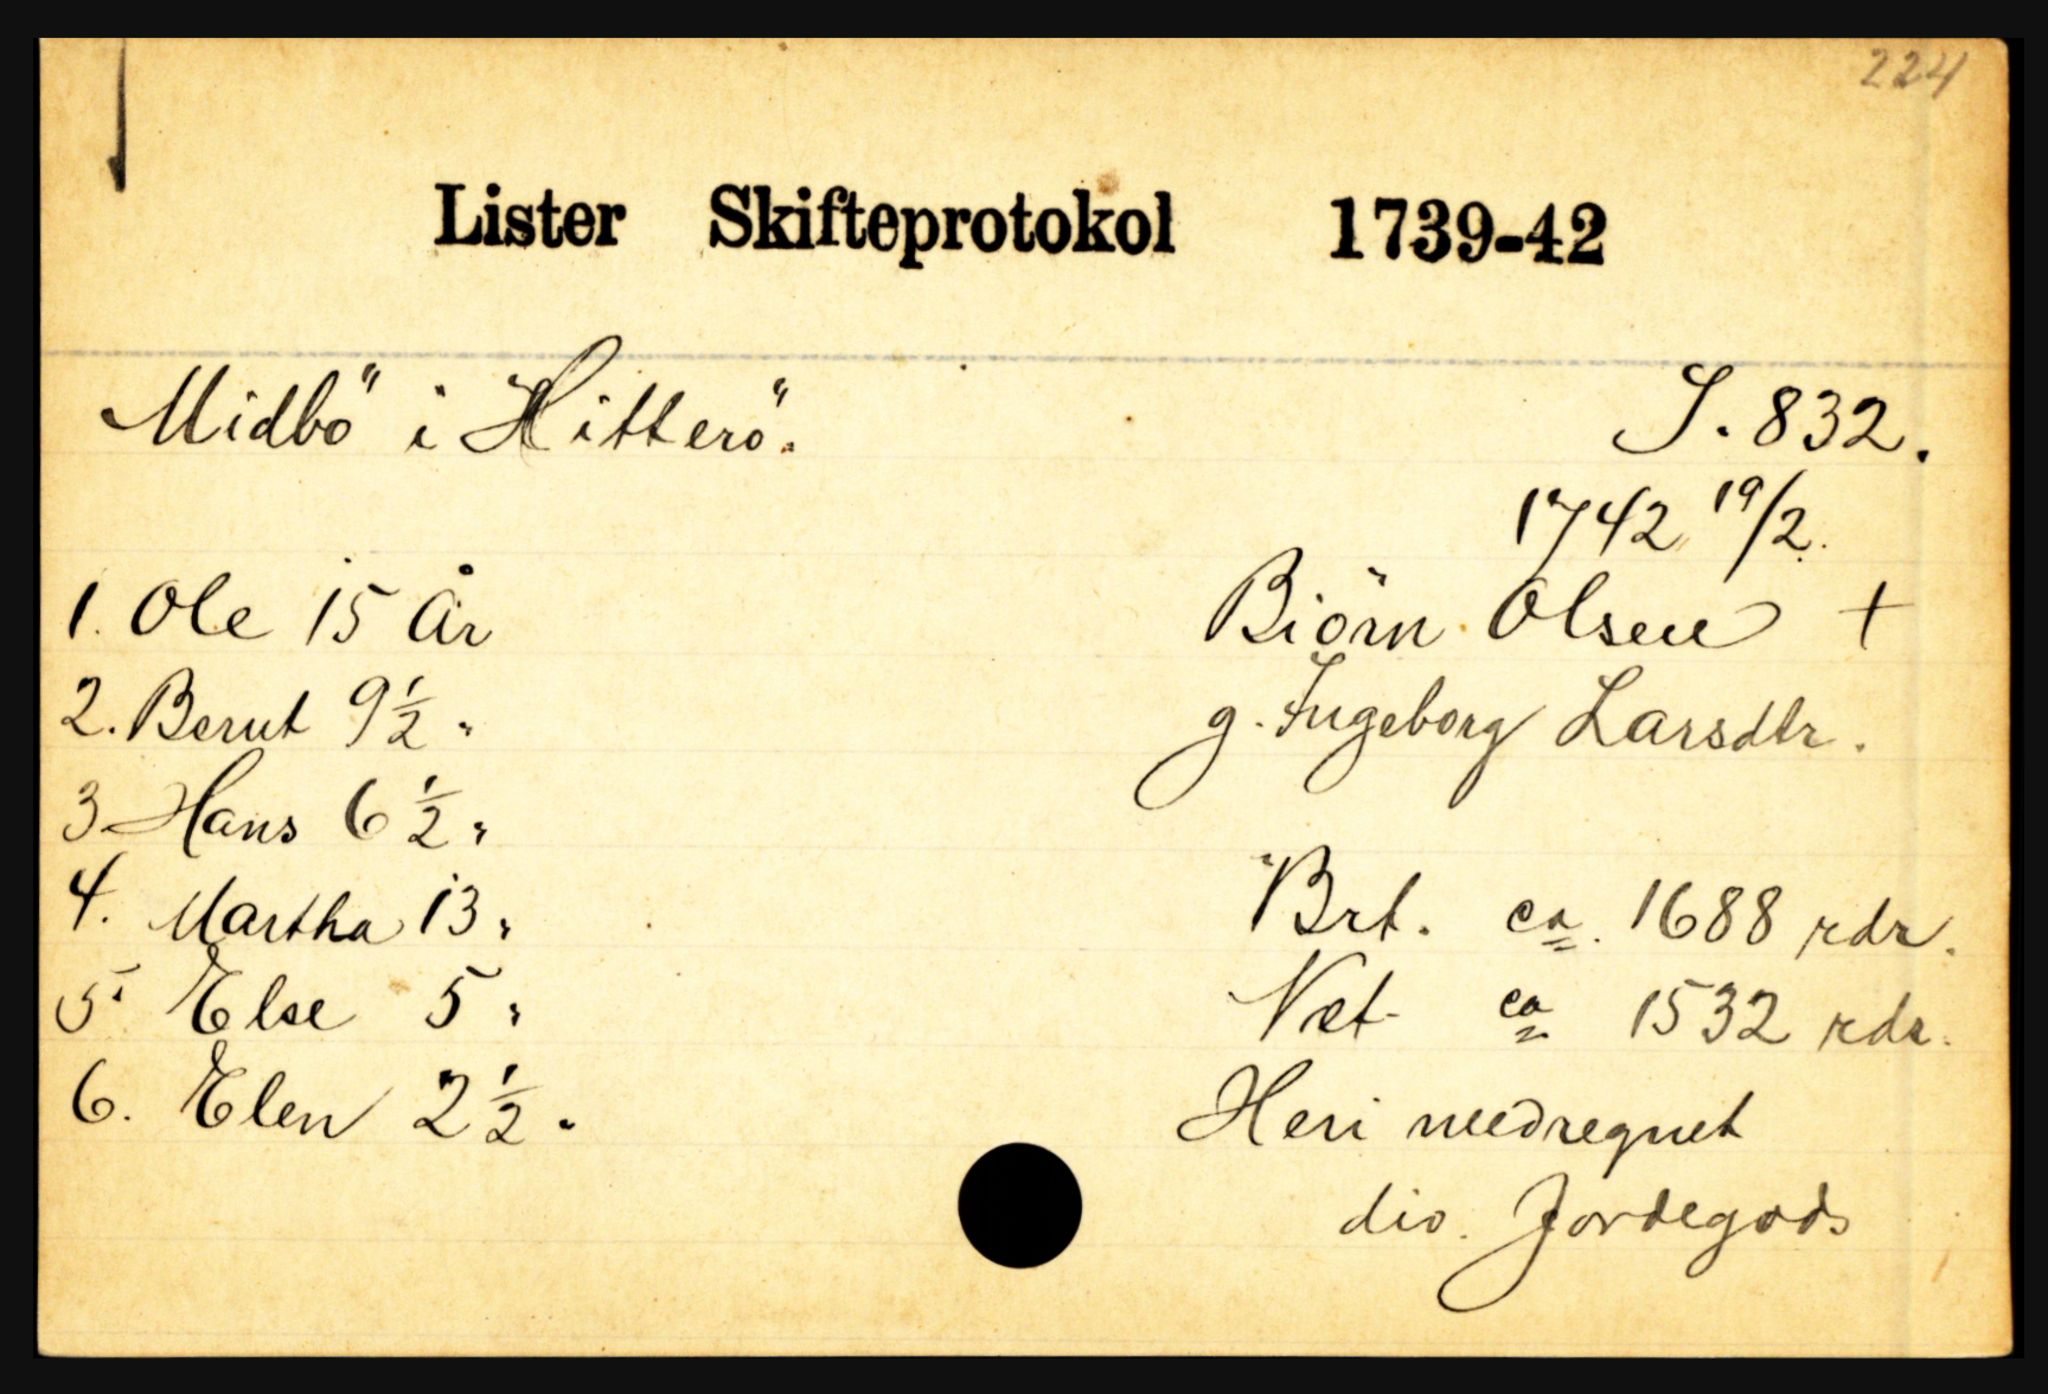 224
Lister Skifteprotokol 1739-42
Midbö i Hitterö.
S. 832.
1742 19/2.
1. Ole 15 År
2. Berut 9 1/2 "
3 Hans 6 1/2 "
4. Martha 13 "
5. Else 5 "
6. Elen 2 1/2 "
Biörn Olsen +
g. Ingeborg Larsdtr.
Brt. ca. 1688 rdr.
Net ca 1532 rdr.
Heri medregnet
div. Jordegods